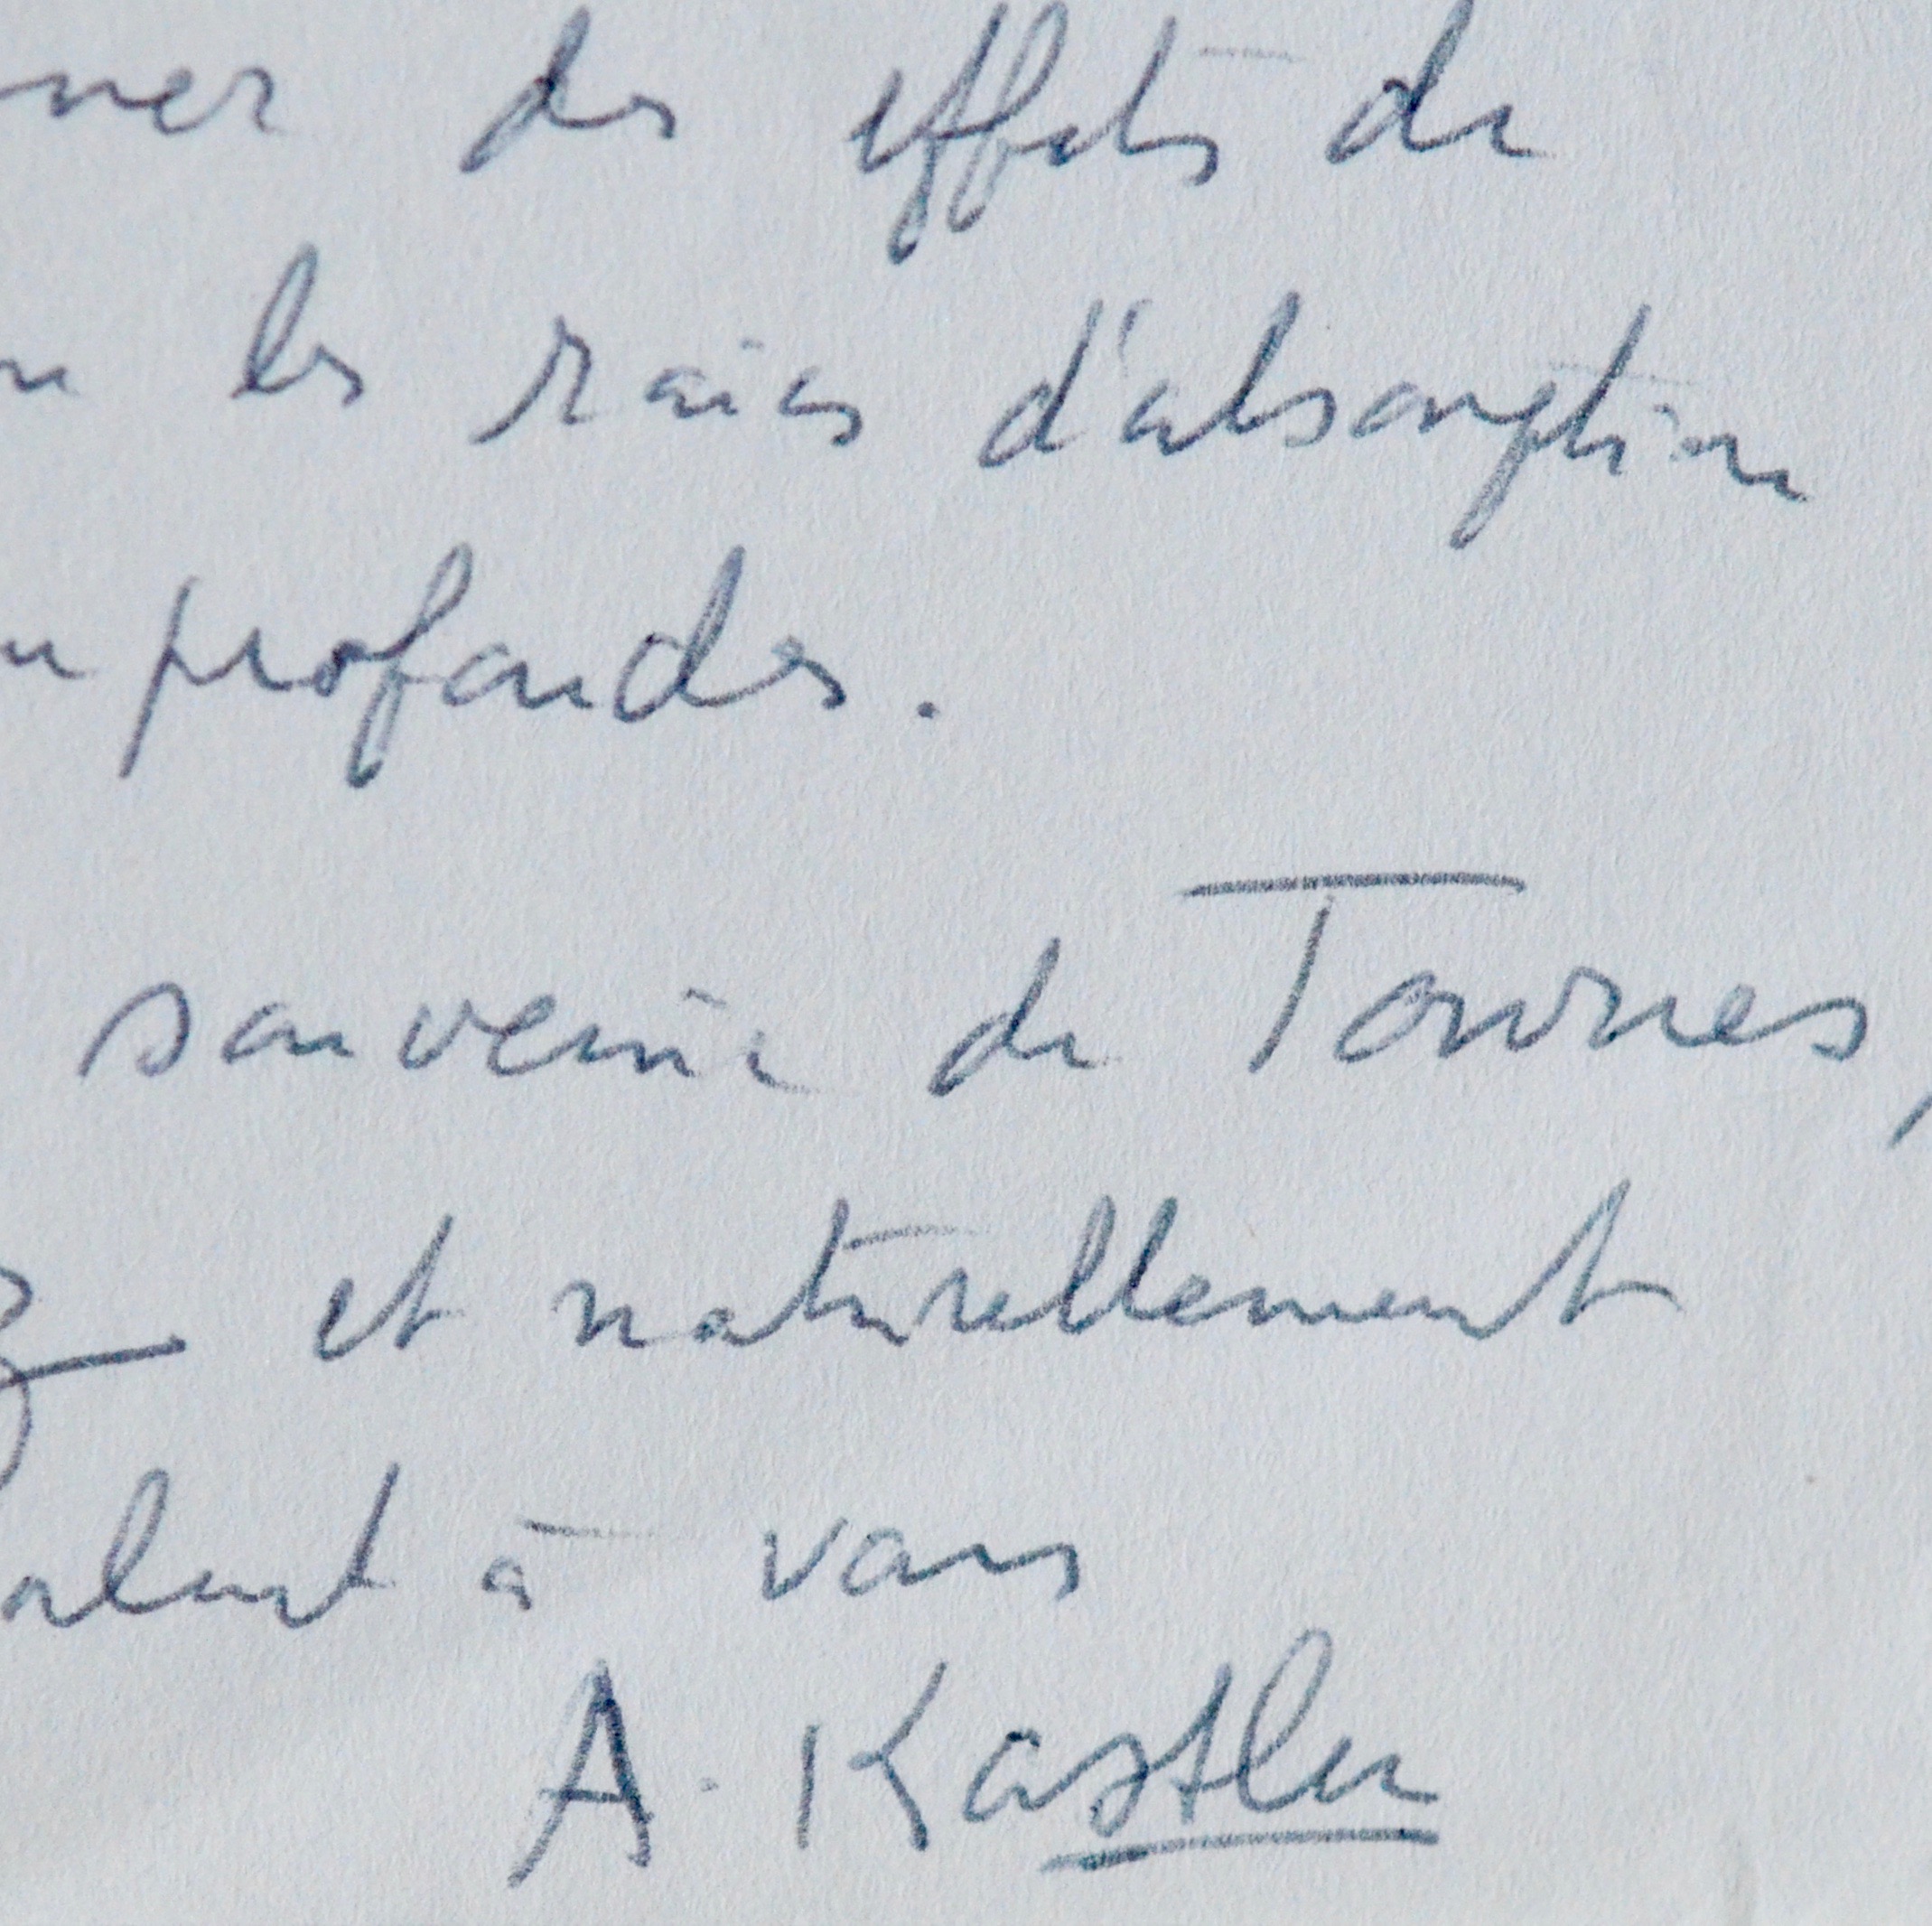 des effets de
les raies d'absorption
profondes.
souvenir de Townes,
et naturellement
à vous
A. Kastler